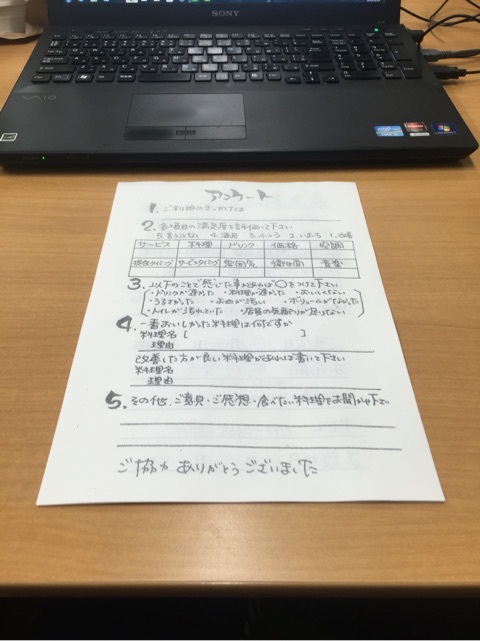 SONY
VAIO
アンケート
1. ご利用のきっかけは
2. 各項目の満足度を評価して下さい
5.言うことない 4.満足 3.ふつう 2.いまいち 1.改善
サービス 料理 ドリンク 価格 空調
提供タイミング サービスタイミング 雰囲気 衛生面 音楽
3. 以下のことで感じた事があれば〇をつけて下さい
・ドリンクが遅れた ・料理が遅かった ・おいしくない
・うるさかった ・お皿が汚い ・ボリュームがなかった
・トイレが汚れていた ・店員の気配りが足りない
4. 一番おいしかった料理は何ですか
料理名 [ ]
理由
改善した方が良い料理があれば書いて下さい
料理名
理由
5. その他、ご意見・ご感想・食べたい料理をお聞かせ下さい
ご協力ありがとうございました